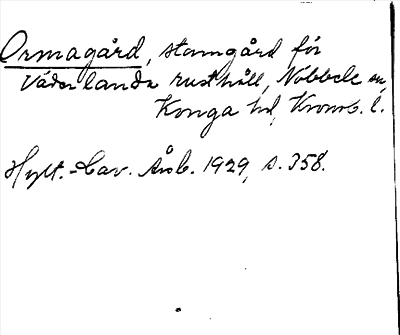 Ormagård, stamgård för
Väderlanda rusthåll, Nöbbele sn,
Konga hd, Kronob. l.
Hylt.-Cav. Årsb. 1929, s. 358.